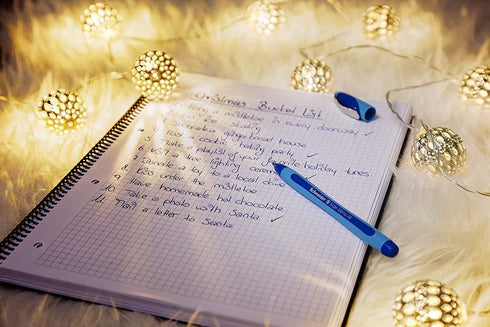 Christmas Bucket List
1. Hang a mistletoe in every doorway ✓
2. Go ice skating
3. Make a gingerbread house
4. Host a cookie baking party ✓
5. Make a playlist of your favorite holiday tunes
6. Visit a tree lighting ceremony
7. Donate a toy to a local drive
8. Kiss under the mistletoe
9. Have homemade hot chocolate
10. Take a photo with Santa ✓
11. Mail a letter to Santa
Schneider